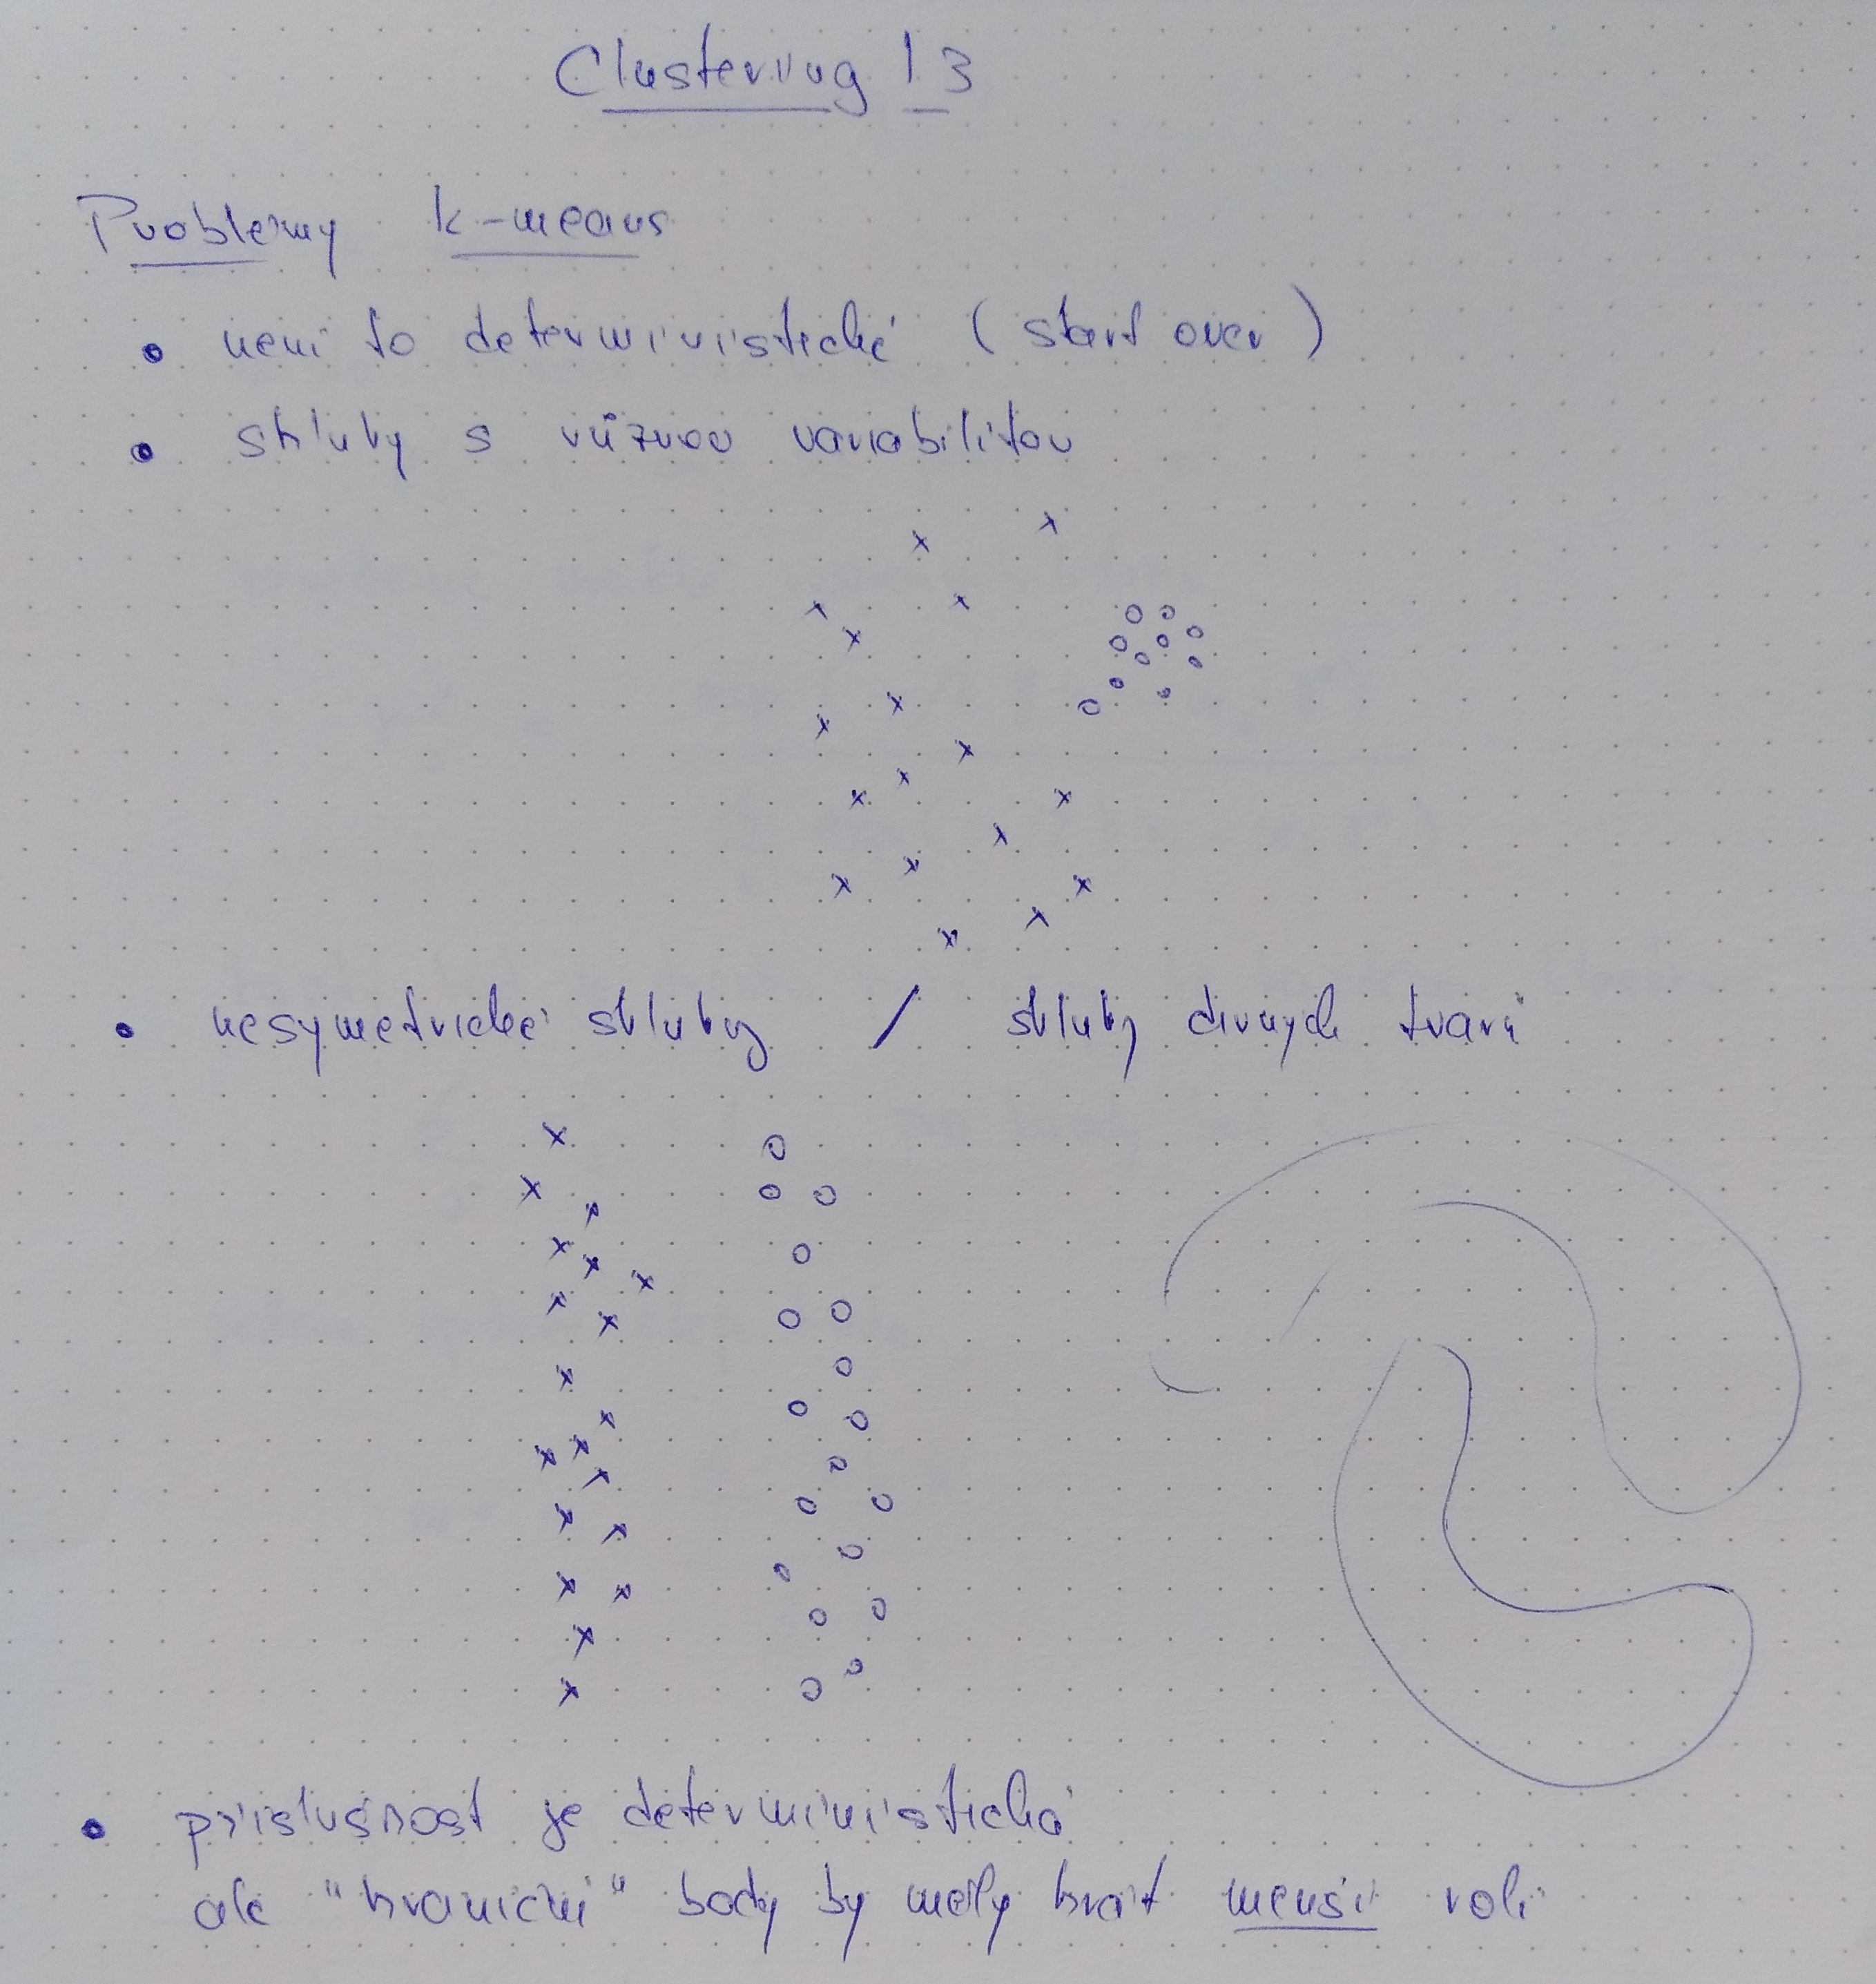 Clustering 13
Problémy k-means
• není to deterministické (start over)
• shluky s různou variabilitou
• nesymetrické shluky / shluky divných tvarů
• príslušnost je deterministická
ale "hraniční" body by měly hrát menší roli